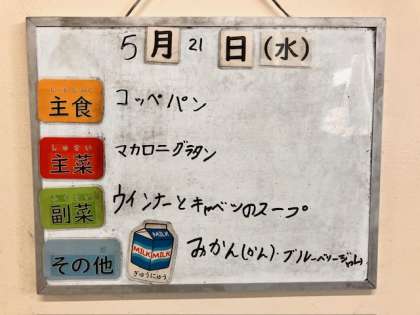 5月21日(水)
主食 コッペパン
主菜 マカロニグラタン
副菜 ウインナーとキャベツのスープ
その他 みかん(かん)・ブルーベリージャム
MILK MILK
ぎゅうにゅう